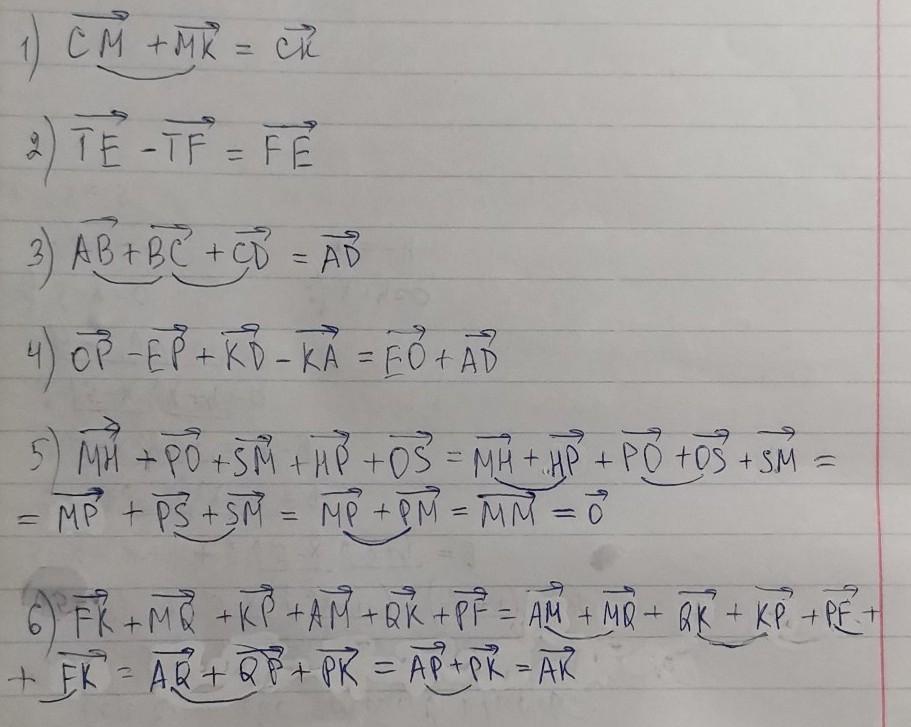 1) CM→ + MK→ = CK→
2) TE→ - TF→ = FE→
3) AB→ + BC→ + CD→ = AD→
4) OP→ - EP→ + KD→ - KA→ = EO→ + AD→
5) MH→ + PO→ + SM→ + HP→ + OS→ = MH→ + HP→ + PO→ + OS→ + SM→ =
= MP→ + PS→ + SM→ = MP→ + PM→ = MM→ = 0→
6) FK→ + MQ→ + KP→ + AM→ + QK→ + PF→ = AM→ + MQ→ + QK→ + KP→ + PF→ +
+ FK→ = AQ→ + QP→ + PK→ = AP→ + PK→ = AK→